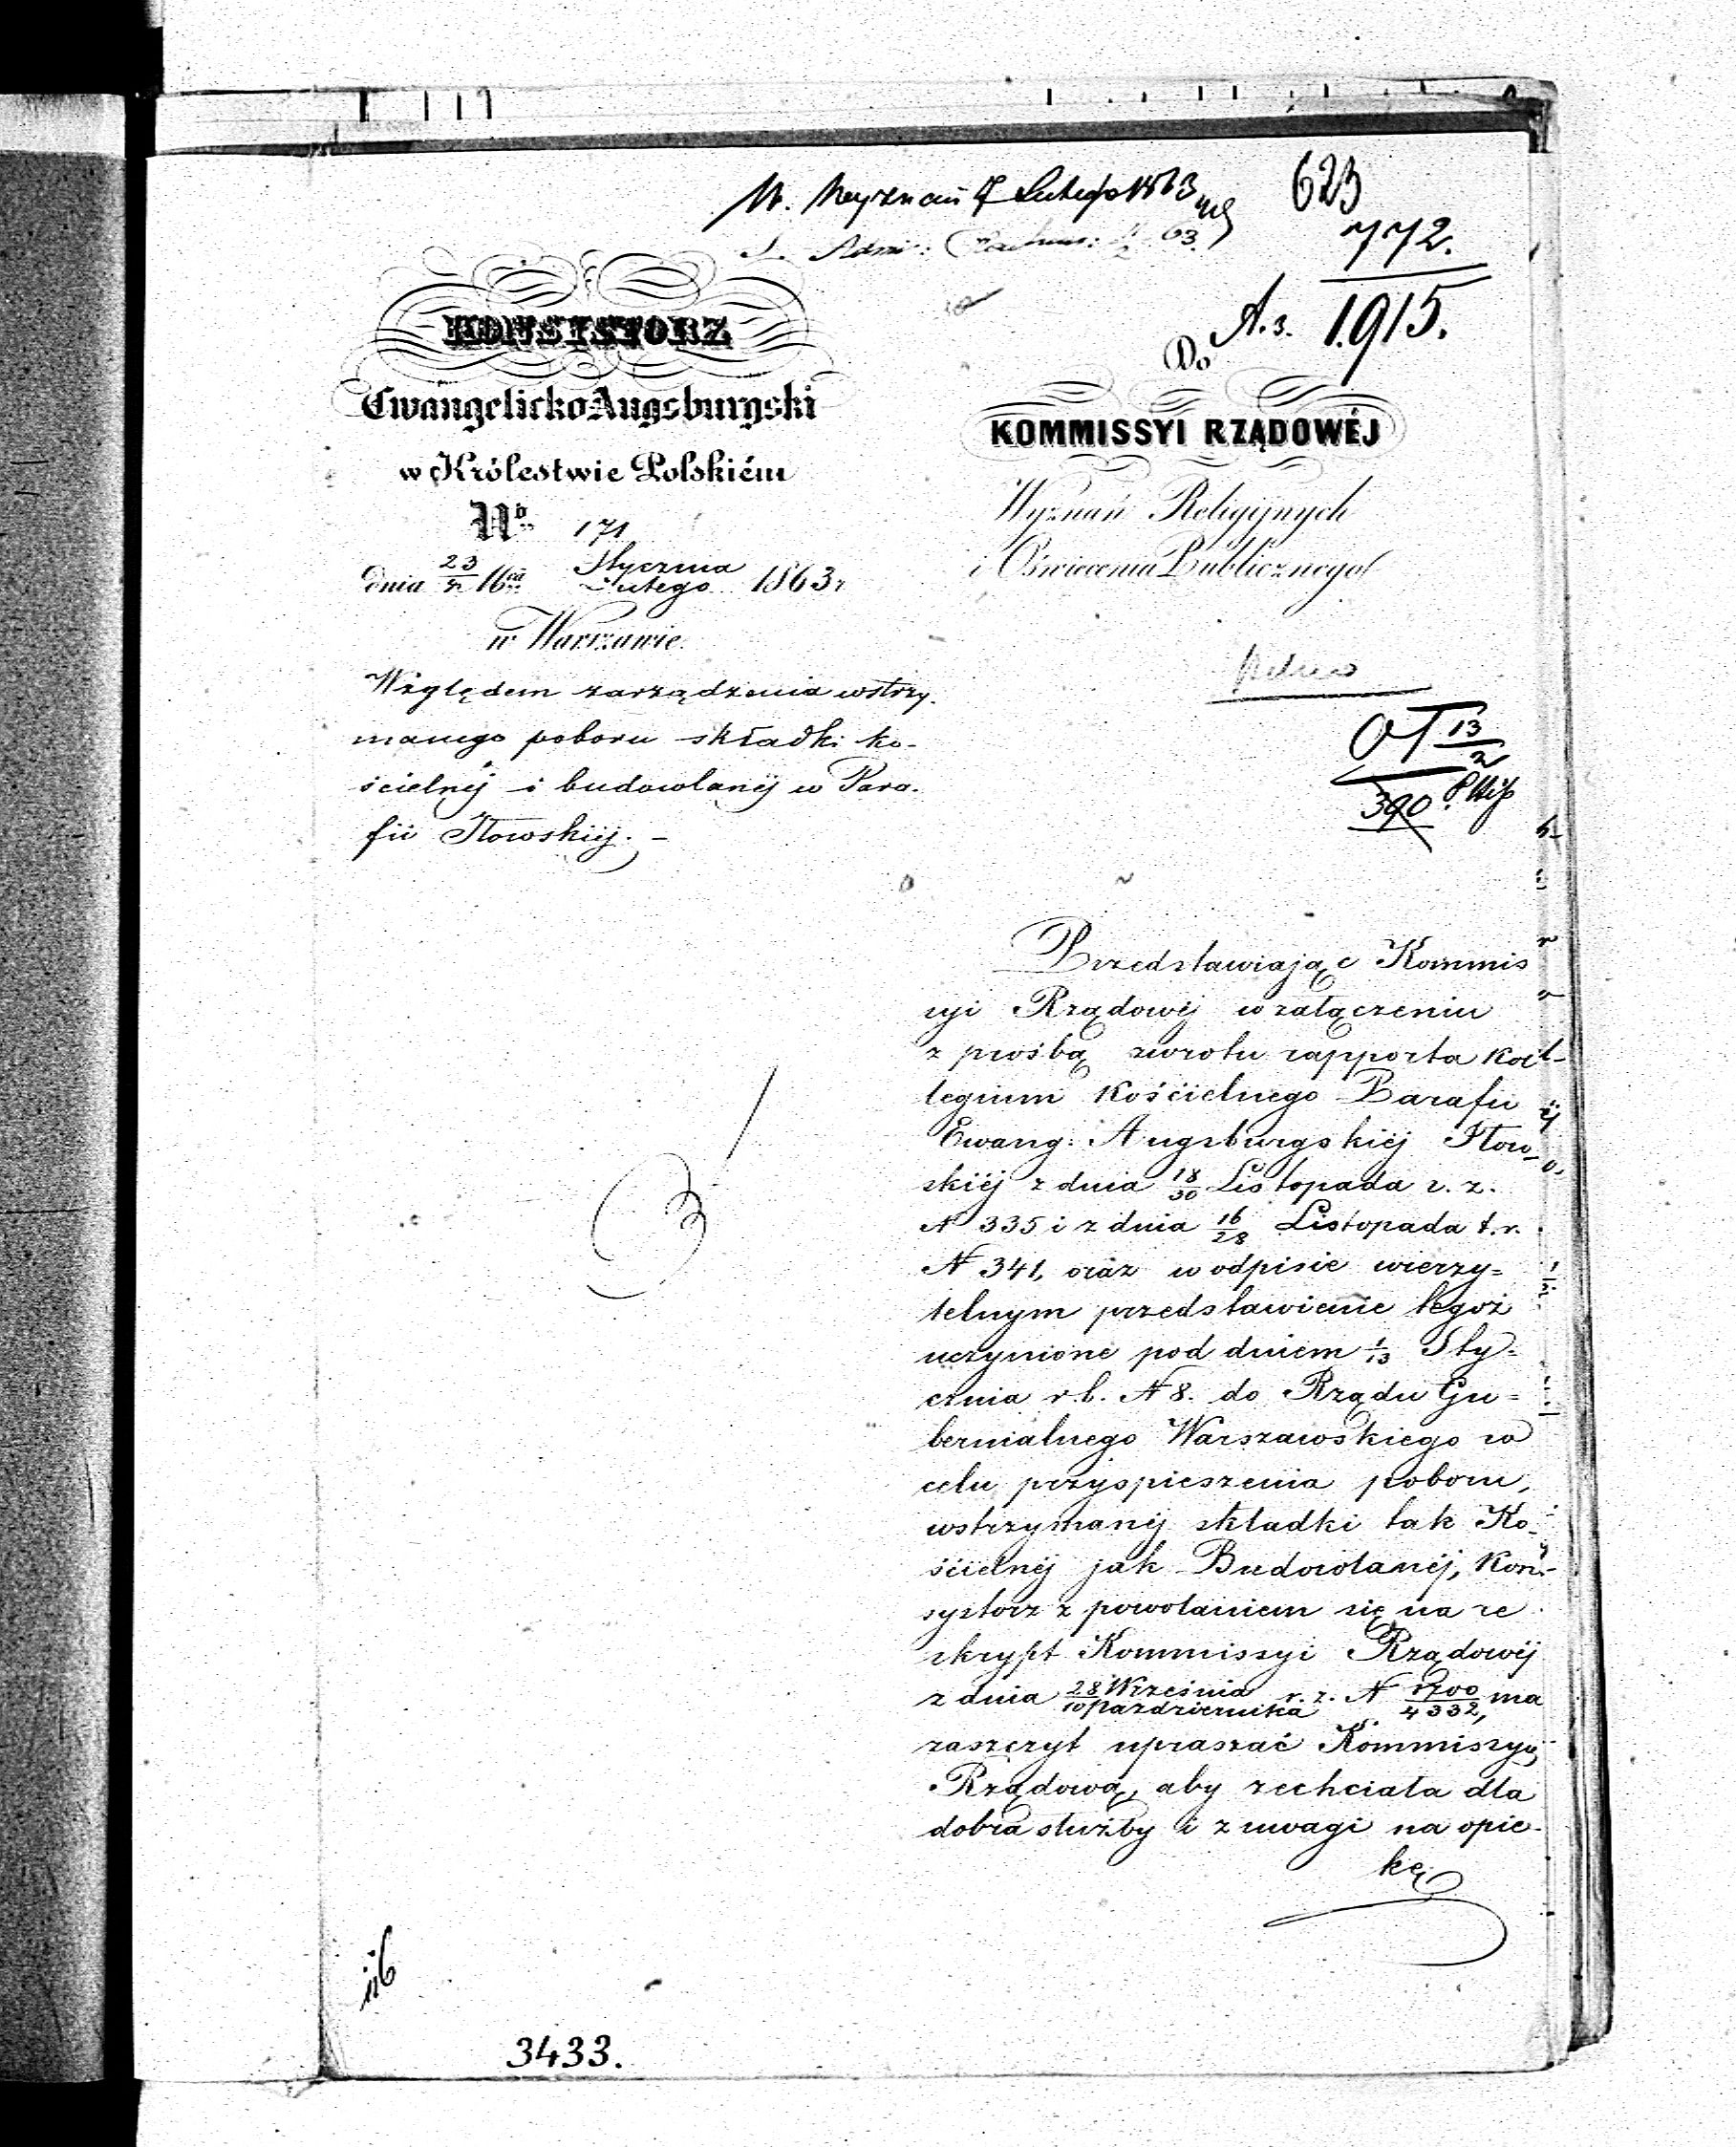 W. Wyznań 7 Lutego 1863
623
772.
A.3. 1915.
KONSYSTORZ
Ewangelicko-Augsburgski
w Królestwie Polskiém
No 171
dnia 23/4 16ca Stycznia/Lutego 1863 r
w Warszawie.
Względem zarządzenia wstrzy-
manego poboru składki ko-
ścielnéj i budowlanéj w Para-
fii Iłowskiéj. -
Do
KOMMISSYI RZĄDOWÉJ
Wyznań Religijnych
i Oświecenia Publicznego
13/2
390
Przedstawiając Kommis
syi Rządowéj w załączeniu
z prośbą zwrotu rapporta Kol-
legium Kościelnego Parafii
Ewang: Augsburgskiéj Iłow-
skiéj z dnia 18/30 Listopada r. z.
N 335 i z dnia 16/28 Listopada t. r.
N 341, oraz w odpisie wierzy=
telnym przedstawienie tegoż
uczynione pod dniem 1/13 Sty=
cznia r. b. N 8. do Rządu Gu=
bernialnego Warszawskiego w
celu przyspieszenia poboru,
wstrzymanéj składki tak Ko-
ścielnéj jak Budowlanéj, Kon-
systorz z powołaniem się na re
skrypt Kommissyi Rządowéj
z dnia 28 Września/10 Października r. z. N 1700/4332, ma
zaszczyt upraszać Kommissyę
Rządową, aby zechciała dla
dobra służby i z uwagi na opie-
kę
3433.